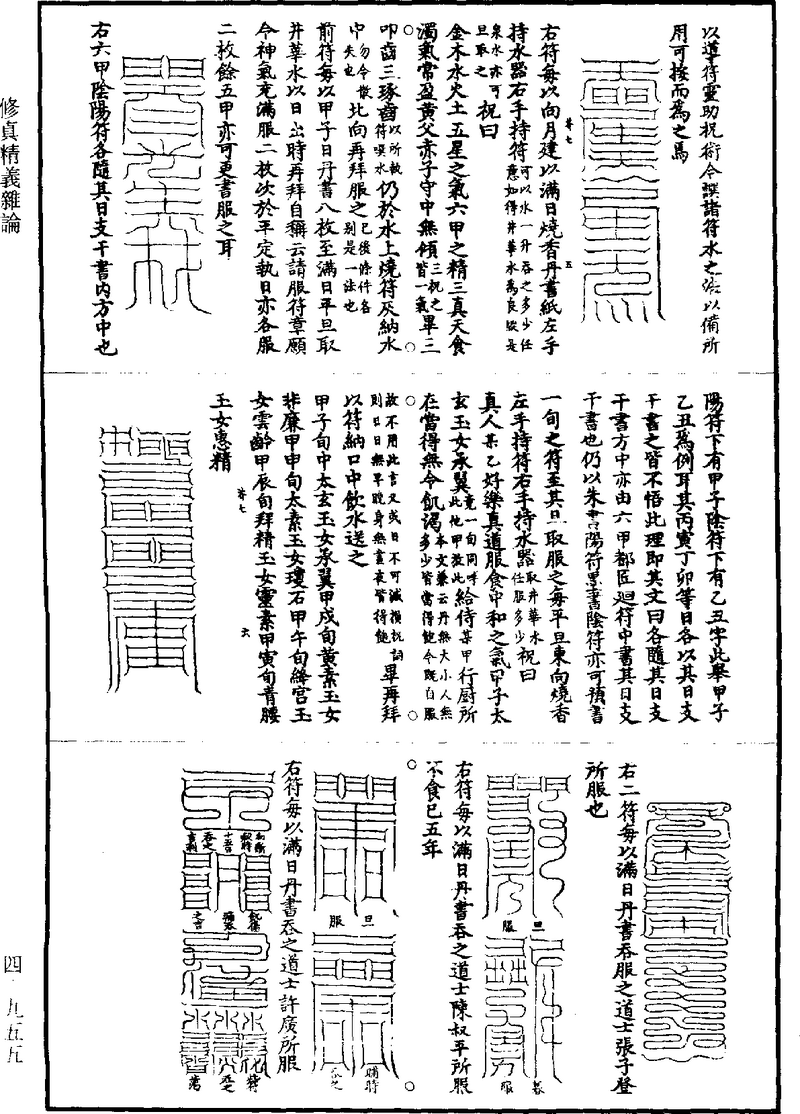 以導符靈助祝術今譔諸符水之法以備所
用可按而為之焉
右符每以向月建以滿日燒香丹書紙左手
持水器右手持符可以水一升吞之多少任意如得井華水為良廢是泉水亦可旦取之祝曰
金木水火土五星之氣六甲之精三真天食
濁氣常盈黃父赤子守中無傾三祝之皆一氣畢三
叩齒三琢齒以所執符噀水仍於水上燒符灰納水
中勿令散失也北向再拜服之已後條件各別是一法也
前符每以甲子日丹書八枚至滿日平旦取
井華水以日出時再拜自稱云請服符章願
令神氣充滿服二枚次於平定執日亦各服
二枚餘五甲亦可更書服之耳
右六甲陰陽符各隨其日支干書內方中也
陽符下有甲子陰符下有乙丑字此舉甲子
乙丑為例耳其丙寅丁卯等日各以其日支
干書之皆不悟此理即其文曰各隨其日支
干書方中亦由六甲都匠迴符中書其日支
干書也仍以朱書陽符墨書陰符亦可預書
一旬之符至其旦取服之每平旦東向燒香
左手持符右手持水器取井華水任服多少祝曰
真人某乙好樂真道服食中和之氣甲子太
玄玉女承翼竟一旬同呼此他甲放此給侍某甲行廚所
在當得無令飢渴本文兼云丹無大小人無多少皆當得飽今既自服
故不用此言又或日不可減損祝詞則日日無早晚身無晝夜皆得飽畢再拜
以符納口中飲水送之
甲子旬中太玄玉女承翼甲戌旬黃素玉女
非廉甲申旬太素玉女瓊石甲午旬絳宮玉
女雲齡甲辰旬拜精玉女靈素甲寅旬青腰
玉女惠精
右二符每以滿日丹書吞服之道士張子登
所服也
旦服
暮服
右符每以滿日丹書吞之道士陳叔平所服
不食已五年
旦服
晡時吞之
右符每以滿日丹書吞之道士許廣所服
修真精義雜論
四·九五五